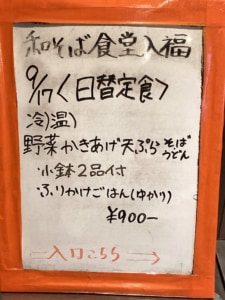 和そば食堂入福
9/17〈日替定食〉
冷)温)
野菜かきあげ天ぷらそばうどん
小鉢2品付
ふりかけごはん(ゆかり)
¥900-
入口こちら→